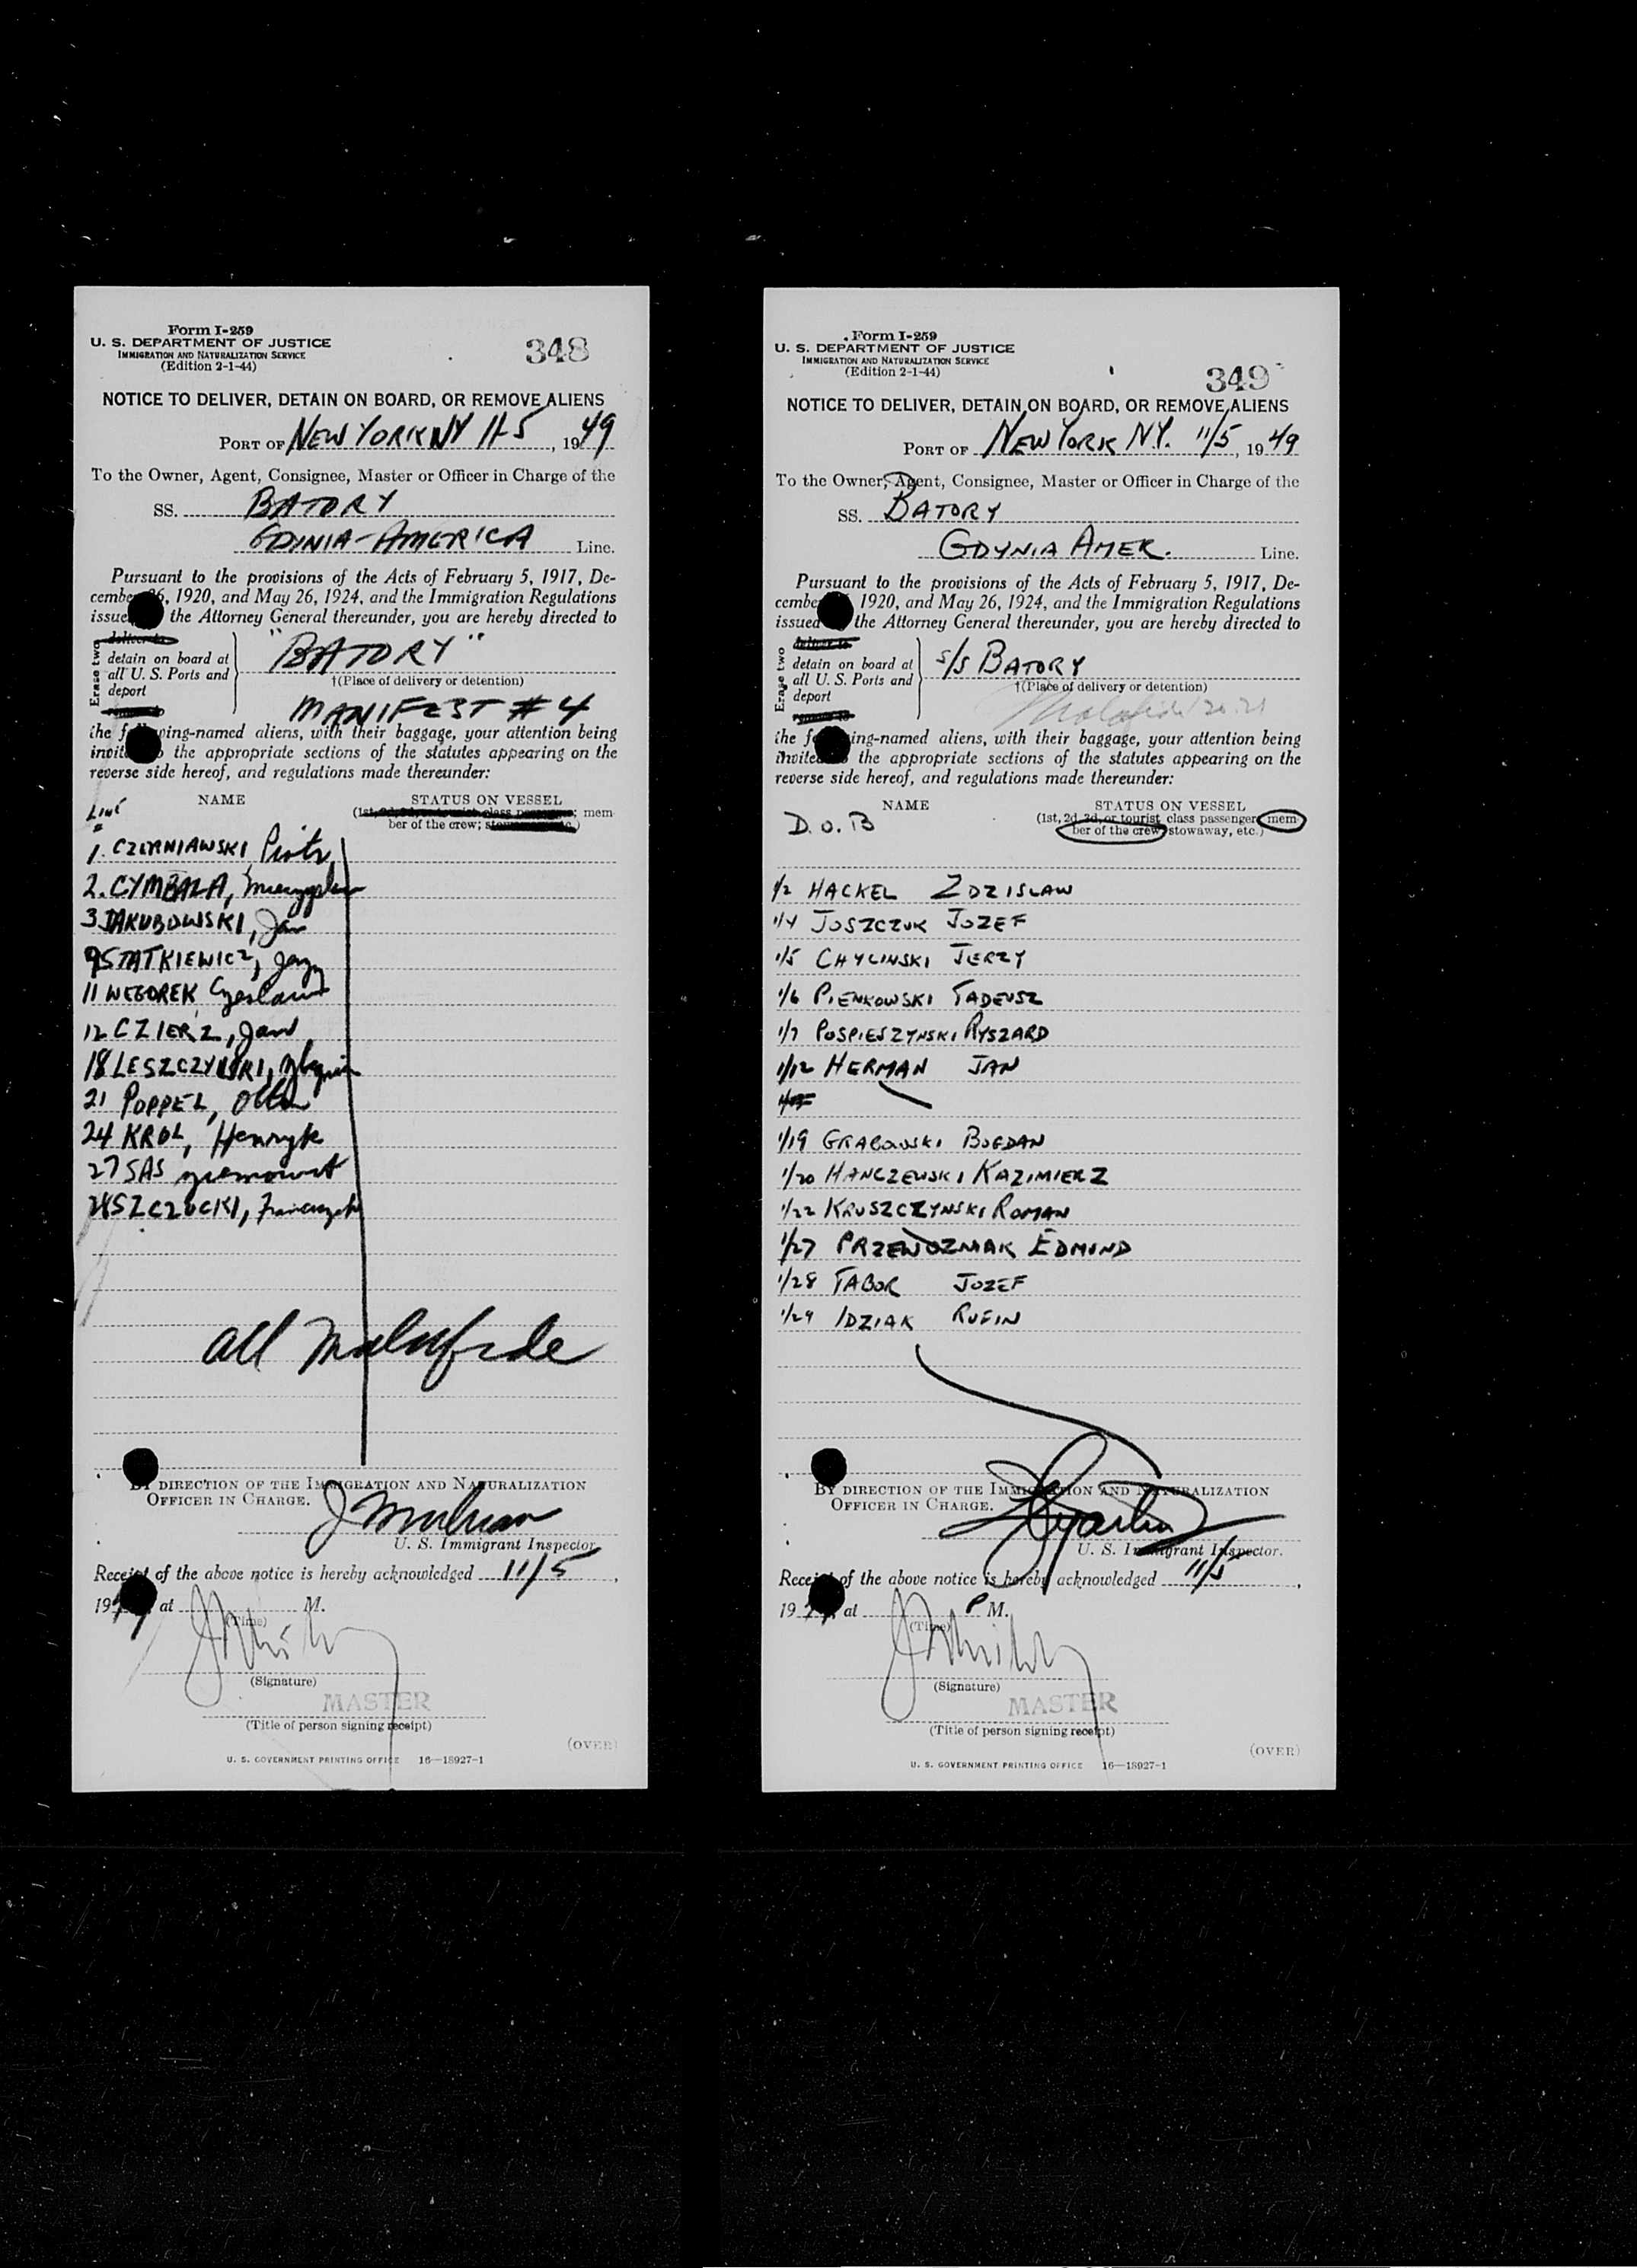 Form I-259
U. S. DEPARTMENT OF JUSTICE
IMMIGRATION AND NATURALIZATION SERVICE
(Edition 2-1-44)
348
NOTICE TO DELIVER, DETAIN ON BOARD, OR REMOVE ALIENS
PORT OF NEW YORK NY 11-5, 1949
To the Owner, Agent, Consignee, Master or Officer in Charge of the
SS. BATORY
GDINIA-AMERICA Line.
Pursuant to the provisions of the Acts of February 5, 1917, De-
cember 26, 1920, and May 26, 1924, and the Immigration Regulations
issued the Attorney General thereunder, you are hereby directed to
Erase two
deliver to
detain on board at
all U. S. Ports and
deport
"BATORY"
†(Place of delivery or detention)
MANIFEST # 4
the following-named aliens, with their baggage, your attention being
invited to the appropriate sections of the statutes appearing on the
reverse side hereof, and regulations made thereunder:
LINE
#
NAME
STATUS ON VESSEL
(1st, 2d, 3d, or tourist class passenger; mem-
ber of the crew;
1. CZERNIAWSKI Piotr
2. CYMBALA,
3 JAKUBOWSKI, Jan
9 STATKIEWICZ, Jerzy
11 WEGOREK Czeslaw
12 CZIERZ, Jan
18 LESZCZYNSKI,
21 POPPEL,
24 KROL, Henryk
27 SAS Ziemowit
28 SZCZUCKI, Franciszek
all Malafide
BY DIRECTION OF THE IMMIGRATION AND NATURALIZATION
OFFICER IN CHARGE.
U. S. Immigrant Inspector.
Receipt of the above notice is hereby acknowledged 11/5,
1949, at M.
(Time)
(Signature)
MASTER
(Title of person signing receipt)
(OVER)
U. S. GOVERNMENT PRINTING OFFICE 16—18927-1
Form I-259
U. S. DEPARTMENT OF JUSTICE
IMMIGRATION AND NATURALIZATION SERVICE
(Edition 2-1-44)
349
NOTICE TO DELIVER, DETAIN ON BOARD, OR REMOVE ALIENS
PORT OF NEW YORK N.Y. 11/5, 1949
To the Owner, Agent, Consignee, Master or Officer in Charge of the
SS. BATORY
GDYNIA AMER. Line.
Pursuant to the provisions of the Acts of February 5, 1917, De-
cember 1920, and May 26, 1924, and the Immigration Regulations
issued the Attorney General thereunder, you are hereby directed to
Erase two
deliver to
detain on board at
all U. S. Ports and
deport
S/S BATORY
†(Place of delivery or detention)
Malafide 20.21
the following-named aliens, with their baggage, your attention being
invited the appropriate sections of the statutes appearing on the
reverse side hereof, and regulations made thereunder:
D.O.B
NAME
STATUS ON VESSEL
(1st, 2d, 3d, or tourist class passenger, mem-
ber of the crew, stowaway, etc.)
1/2 HACKEL ZDZISLAW
1/4 JOSZCZUK JOZEF
1/5 CHYLINSKI JERZY
1/6 PIENKOWSKI TADEUSZ
1/7 POSPIESZYNSKI RYSZARD
1/12 HERMAN JAN
1/19 GRABOWSKI BOGDAN
1/20 HANCZEWSKI KAZIMIERZ
1/22 KRUSZCZYNSKI ROMAN
1/27 PRZEWOZNIAK EDMUND
1/28 TABOR JOZEF
1/29 IDZIAK RUFIN
BY DIRECTION OF THE IMMIGRATION AND NATURALIZATION
OFFICER IN CHARGE.
U. S. Immigrant Inspector.
Receipt of the above notice is hereby acknowledged 11/5,
1949, at P M.
(Time)
(Signature)
MASTER
(Title of person signing receipt)
(OVER)
U. S. GOVERNMENT PRINTING OFFICE 16—18927-1